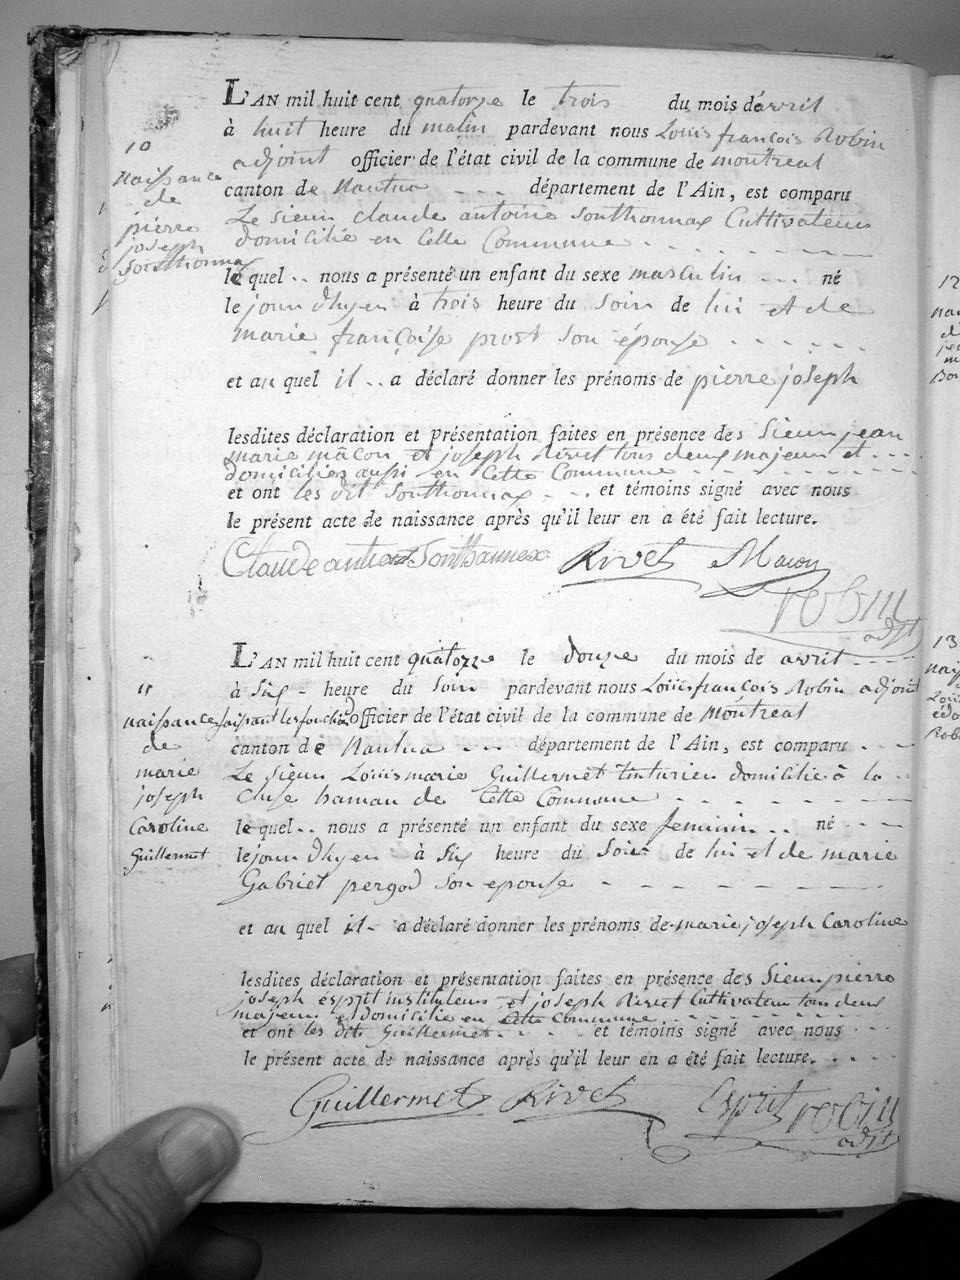 10
naissance
de
pierre
joseph
Sonthonnax
L'AN mil huit cent quatorze le trois du mois d'avril
à huit heure du matin pardevant nous Louis françois Robin
adjoint officier de l'état civil de la commune de montreal
canton de Nantua - - - département de l'Ain, est comparu
Le sieur claude antoine Sonthonnax Cultivateur
domicilié en Cette Commune
lequel .. nous a présenté un enfant du sexe masculin ... né
le jour d'hyer à trois heure du Soir de lui et de
marie françoise prost son épouse
et au quel il .. a déclaré donner les prénoms de pierre joseph
lesdites déclaration et présentation faites en présence des Sieur jean
marie mâcon et joseph Rivet tous deux majeur et
domiciliés aussi en Cette Commune
et ont les dit Sonthonnax - .. et témoins signé avec nous
le présent acte de naissance après qu'il leur en a été fait lecture.
Claude Sonthonnax Rivet Macon
robin
adjt
11
naissance
de
marie
joseph
Caroline
Guillermet
L'AN mil huit cent quatorze le douze du mois de avril - - - -
à Six - heure du Soir pardevant nous Louis françois Robin adjoint
faisant les fonction officier de l'état civil de la commune de Montreal
canton de Nantua - - - département de l'Ain, est comparu - - -
Le sieur Louis marie Guillermet tinturier domicilié à la
Cluse hamau de Cette Commune
lequel .. nous a présenté un enfant du sexe feminin .. né - - -
le jour d'hyer à Six heure du Soir de lui et de marie
Gabriel pergod son epouse
et au quel il - a déclaré donner les prénoms de marie joseph Caroline
lesdites déclaration et présentation faites en présence des Sieur pierre
joseph ésprit instituteur et joseph Rivet Cultivateur tous deux
majeur et domicilié en Cette Commune
et ont les dit Guillermet - - - et témoins signé avec nous
le présent acte de naissance après qu'il leur en a été fait lecture.
Guillermet Rivet Esprit robin
adjt
12
13